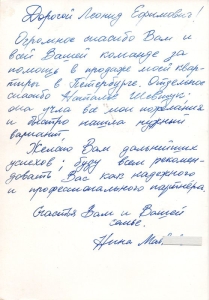 Дорогой Леонид Ефимович!
Огромное спасибо Вам и
всей Вашей команде за
помощь в продаже моей квар-
тиры в Петербурге. Отдельное
спасибо Наталье Шевчук:
она учла все мои пожелания
и быстро нашла нужный
вариант.
Желаю Вам дальнейших
успехов; буду всем рекомен-
довать Вас как надежного
и профессионального партнёра.
Счастья Вам и Вашей
семье.
Нина